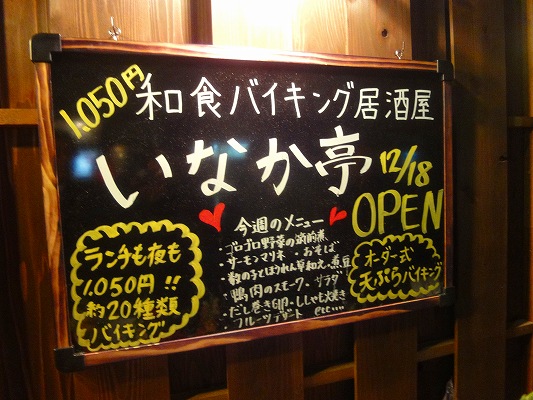 1.050円
和食バイキング居酒屋
いなか亭
12/18
OPEN
今週のメニュー
・ゴロゴロ野菜の筑前煮
・サーモンマリネ・おそば
・数の子とほうれん草和え・煮豆
・鴨肉のスモーク・サラダ
・だし巻き玉子・ししゃも天ぷら
・フルーツデザート etc...
ランチも夜も
1.050円!!
約20種類
バイキング
オーダー式
天ぷらバイキング